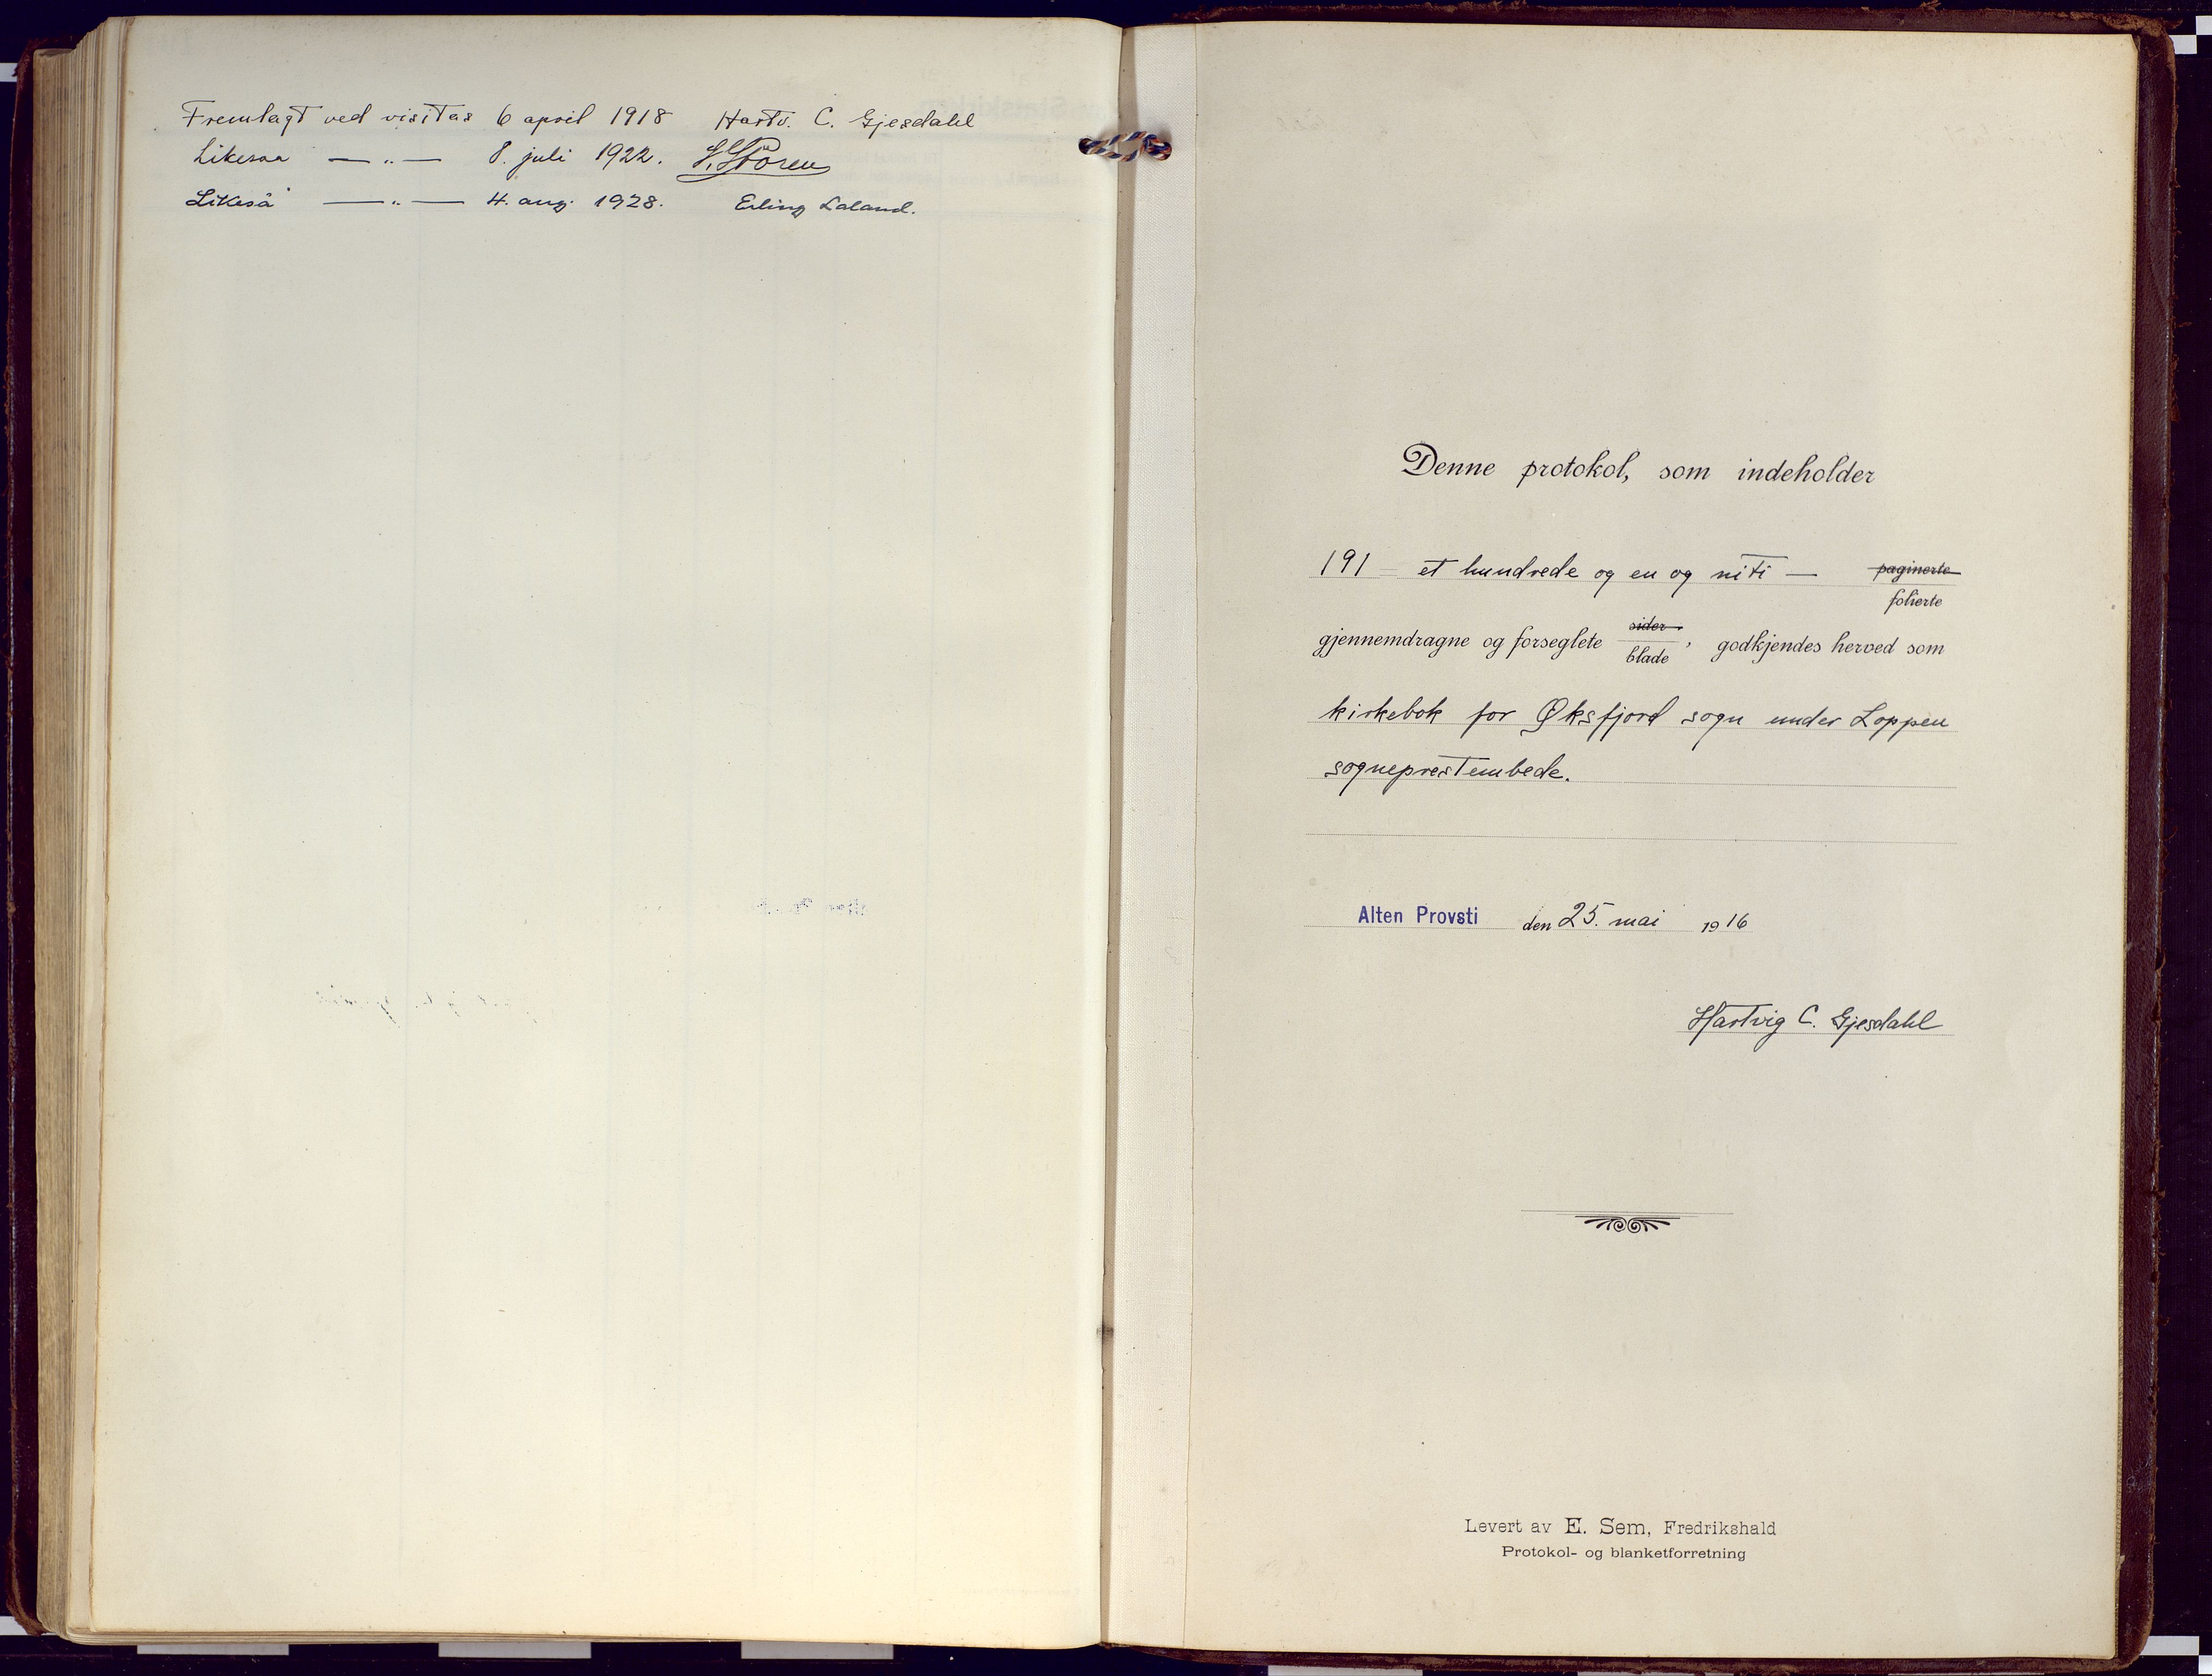 Fremlagt ved visitas 6 april 1918 Hartv. C. Gjesdahl
Likesaa — „ — 8. juli 1922. J. Støren
Likeså — „ — 4. aug. 1928. Erling Laland.
Denne protokol, som indeholder
191 — et hundrede og en og niti — paginerte
folierte
gjennemdragne og forseglete sider
blade, godkjendes herved som
kirkebok for Øksfjord sogn under Loppen
sogneprestembede.
Alten Provsti den 25. mai 1916
Hartvig C. Gjesdahl
Levert av E. Sem, Fredrikshald
Protokol- og blanketforretning